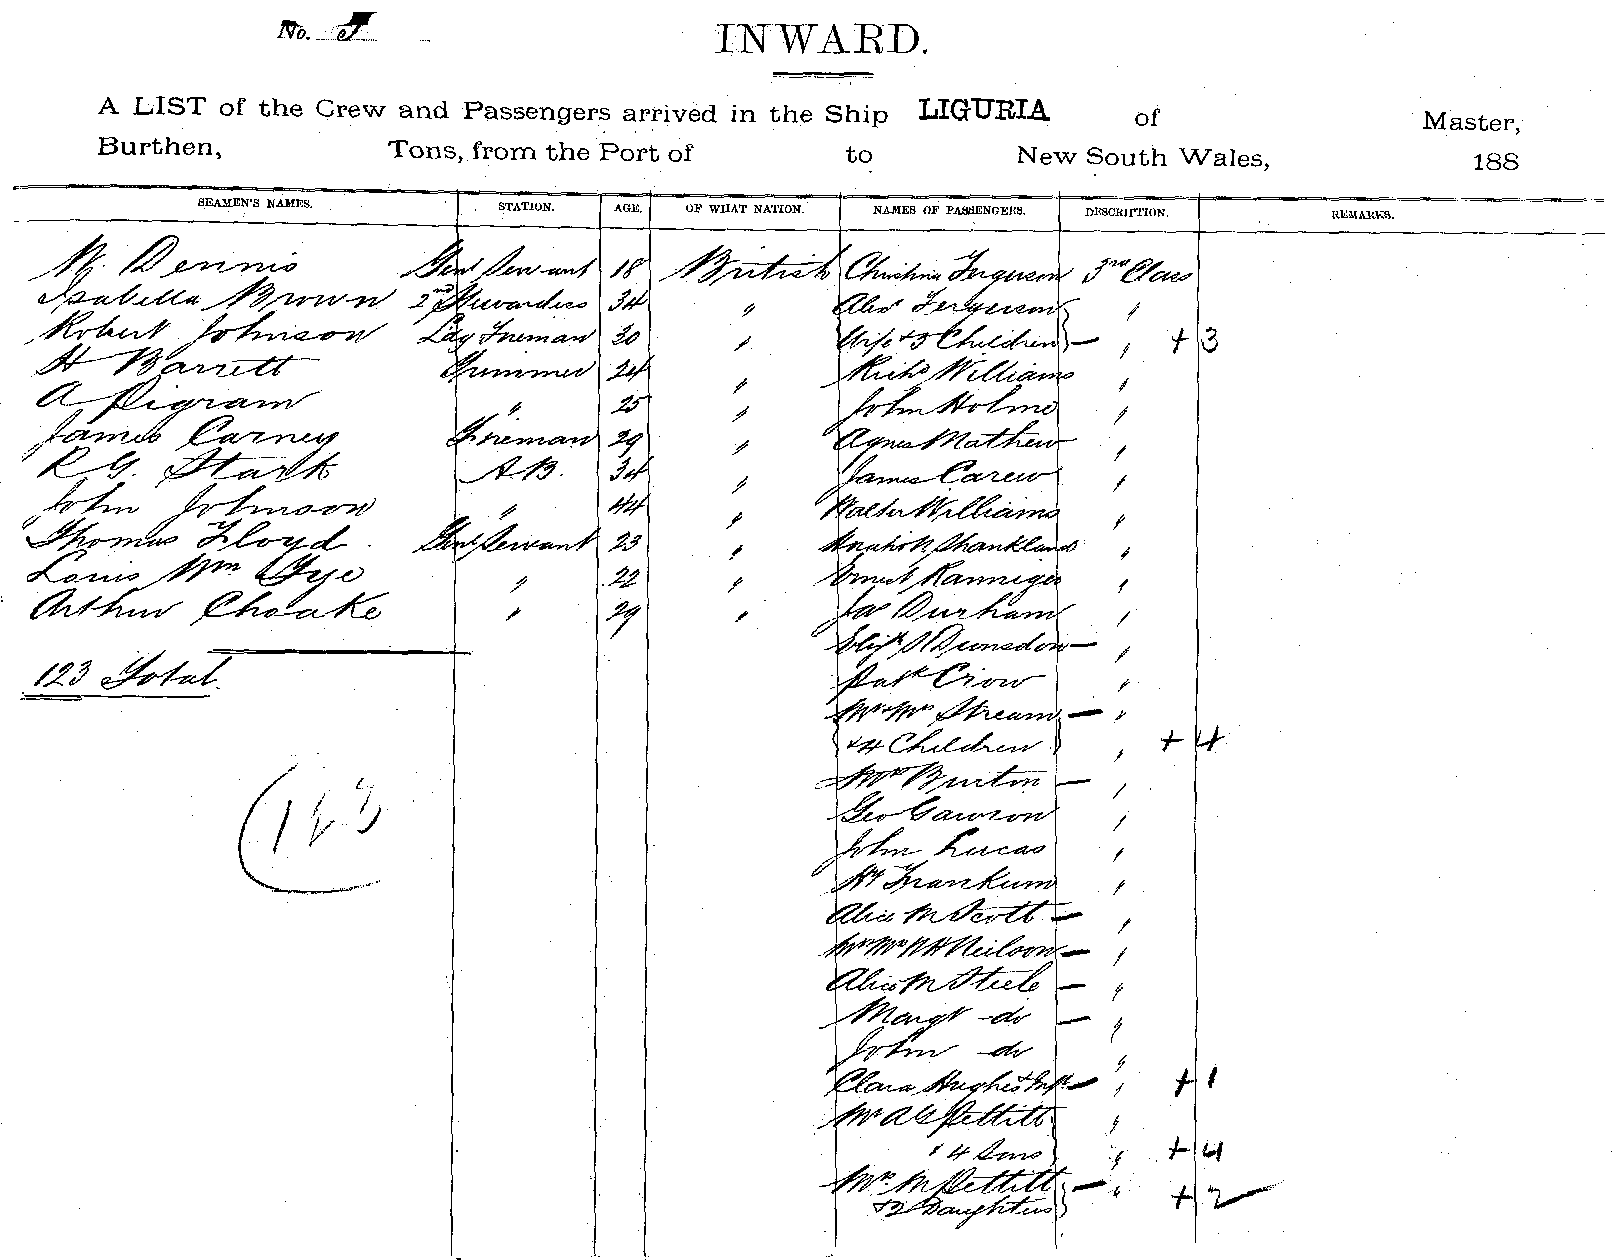 No. 5
INWARD.
A LIST of the Crew and Passengers arrived in the Ship LIGURIA of Master,
Burthen, Tons, from the Port of to New South Wales, 188
SEAMEN'S NAMES. STATION. AGE. OF WHAT NATION. NAMES OF PASSENGERS. DESCRIPTION. REMARKS.
W. Dennis Genl Servant 18 British Christina Ferguson 3rd Class
Isabella Brown 2nd Stewardess 34 " Alexr Ferguson "
Robert Johnson Ldg Fireman 30 " Wife & 3 Children — " + 3
H Barrett Trimmer 24 " Richd Williams "
A Pigram " 25 " John Holme "
James Carney Fireman 29 " Agnes Mathew "
R G. Stark A.B. 34 " James Carew "
John Johnson " 44 " Walter Williams "
Thomas Lloyd Genl Servant 23 " Shankland "
Louis Wm Gye " 22 " Ernest Ranniger "
Arthur Choake " 29 " Jas Durham "
Elizh S Dunsdon — "
123 Total Patk Crow "
Mr & Mrs Stream — "
& 4 Children " + 4
Mrs Burton — "
(123 Geo Gawson "
John Lucas "
Hy Frankum "
Alice M Scott — "
Mr Mrs N H Neilson — "
Alice M Steele — "
Margt do — "
John do "
Clara Hughes & Inft — " + 1
Mr A G Pettitt "
" 4 Sons " + 4
Mrs. M Pettitt — "
& 2 Daughters + 2